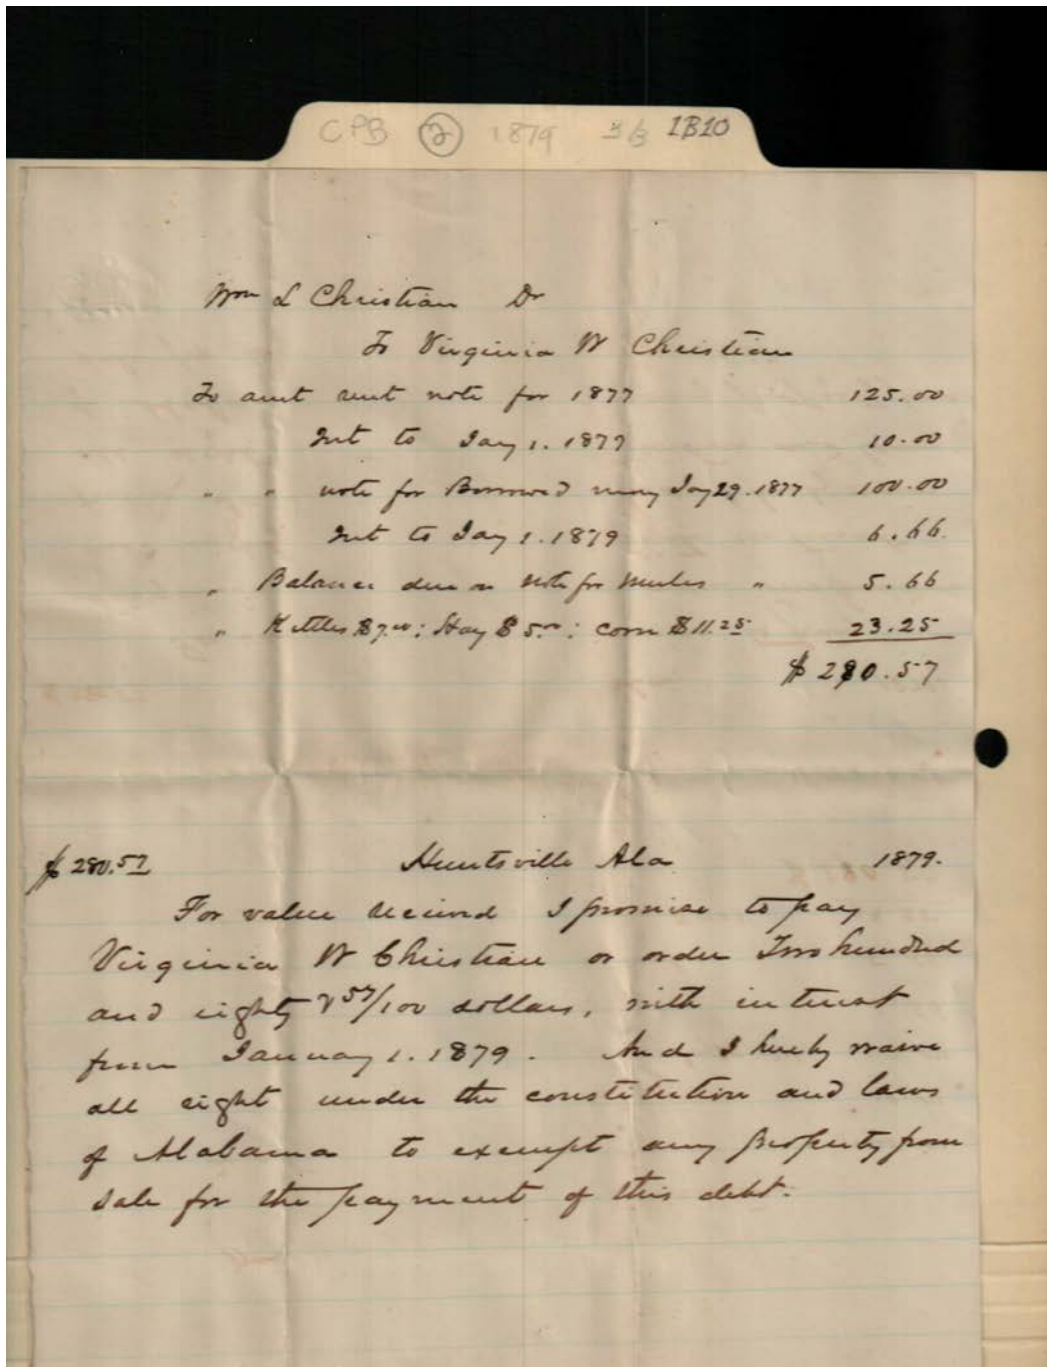 CPB 2 1879 3/3 1B10
Wm L Christian Dr
To Virginia W Christian
To amt rent note for 1877 125.00
Int to Jany 1. 1879 10.00
" " note for Borrowed money Jany 29. 1877 100.00
Int to Jany 1. 1879 6.66
" Balance due on note for mules " 5.66
" Kettles $7.00; Hay $5.00; corn $11.25 23.25
$280.57
$280.57 Huntsville Ala 1879.
For value received I promise to pay
Virginia W Christian or order Two hundred
and eighty & 57/100 dollars, with interest
from January 1. 1879. And I hereby waive
all right under the constitution and laws
of Alabama to exempt any property from
sale for the payment of this debt.